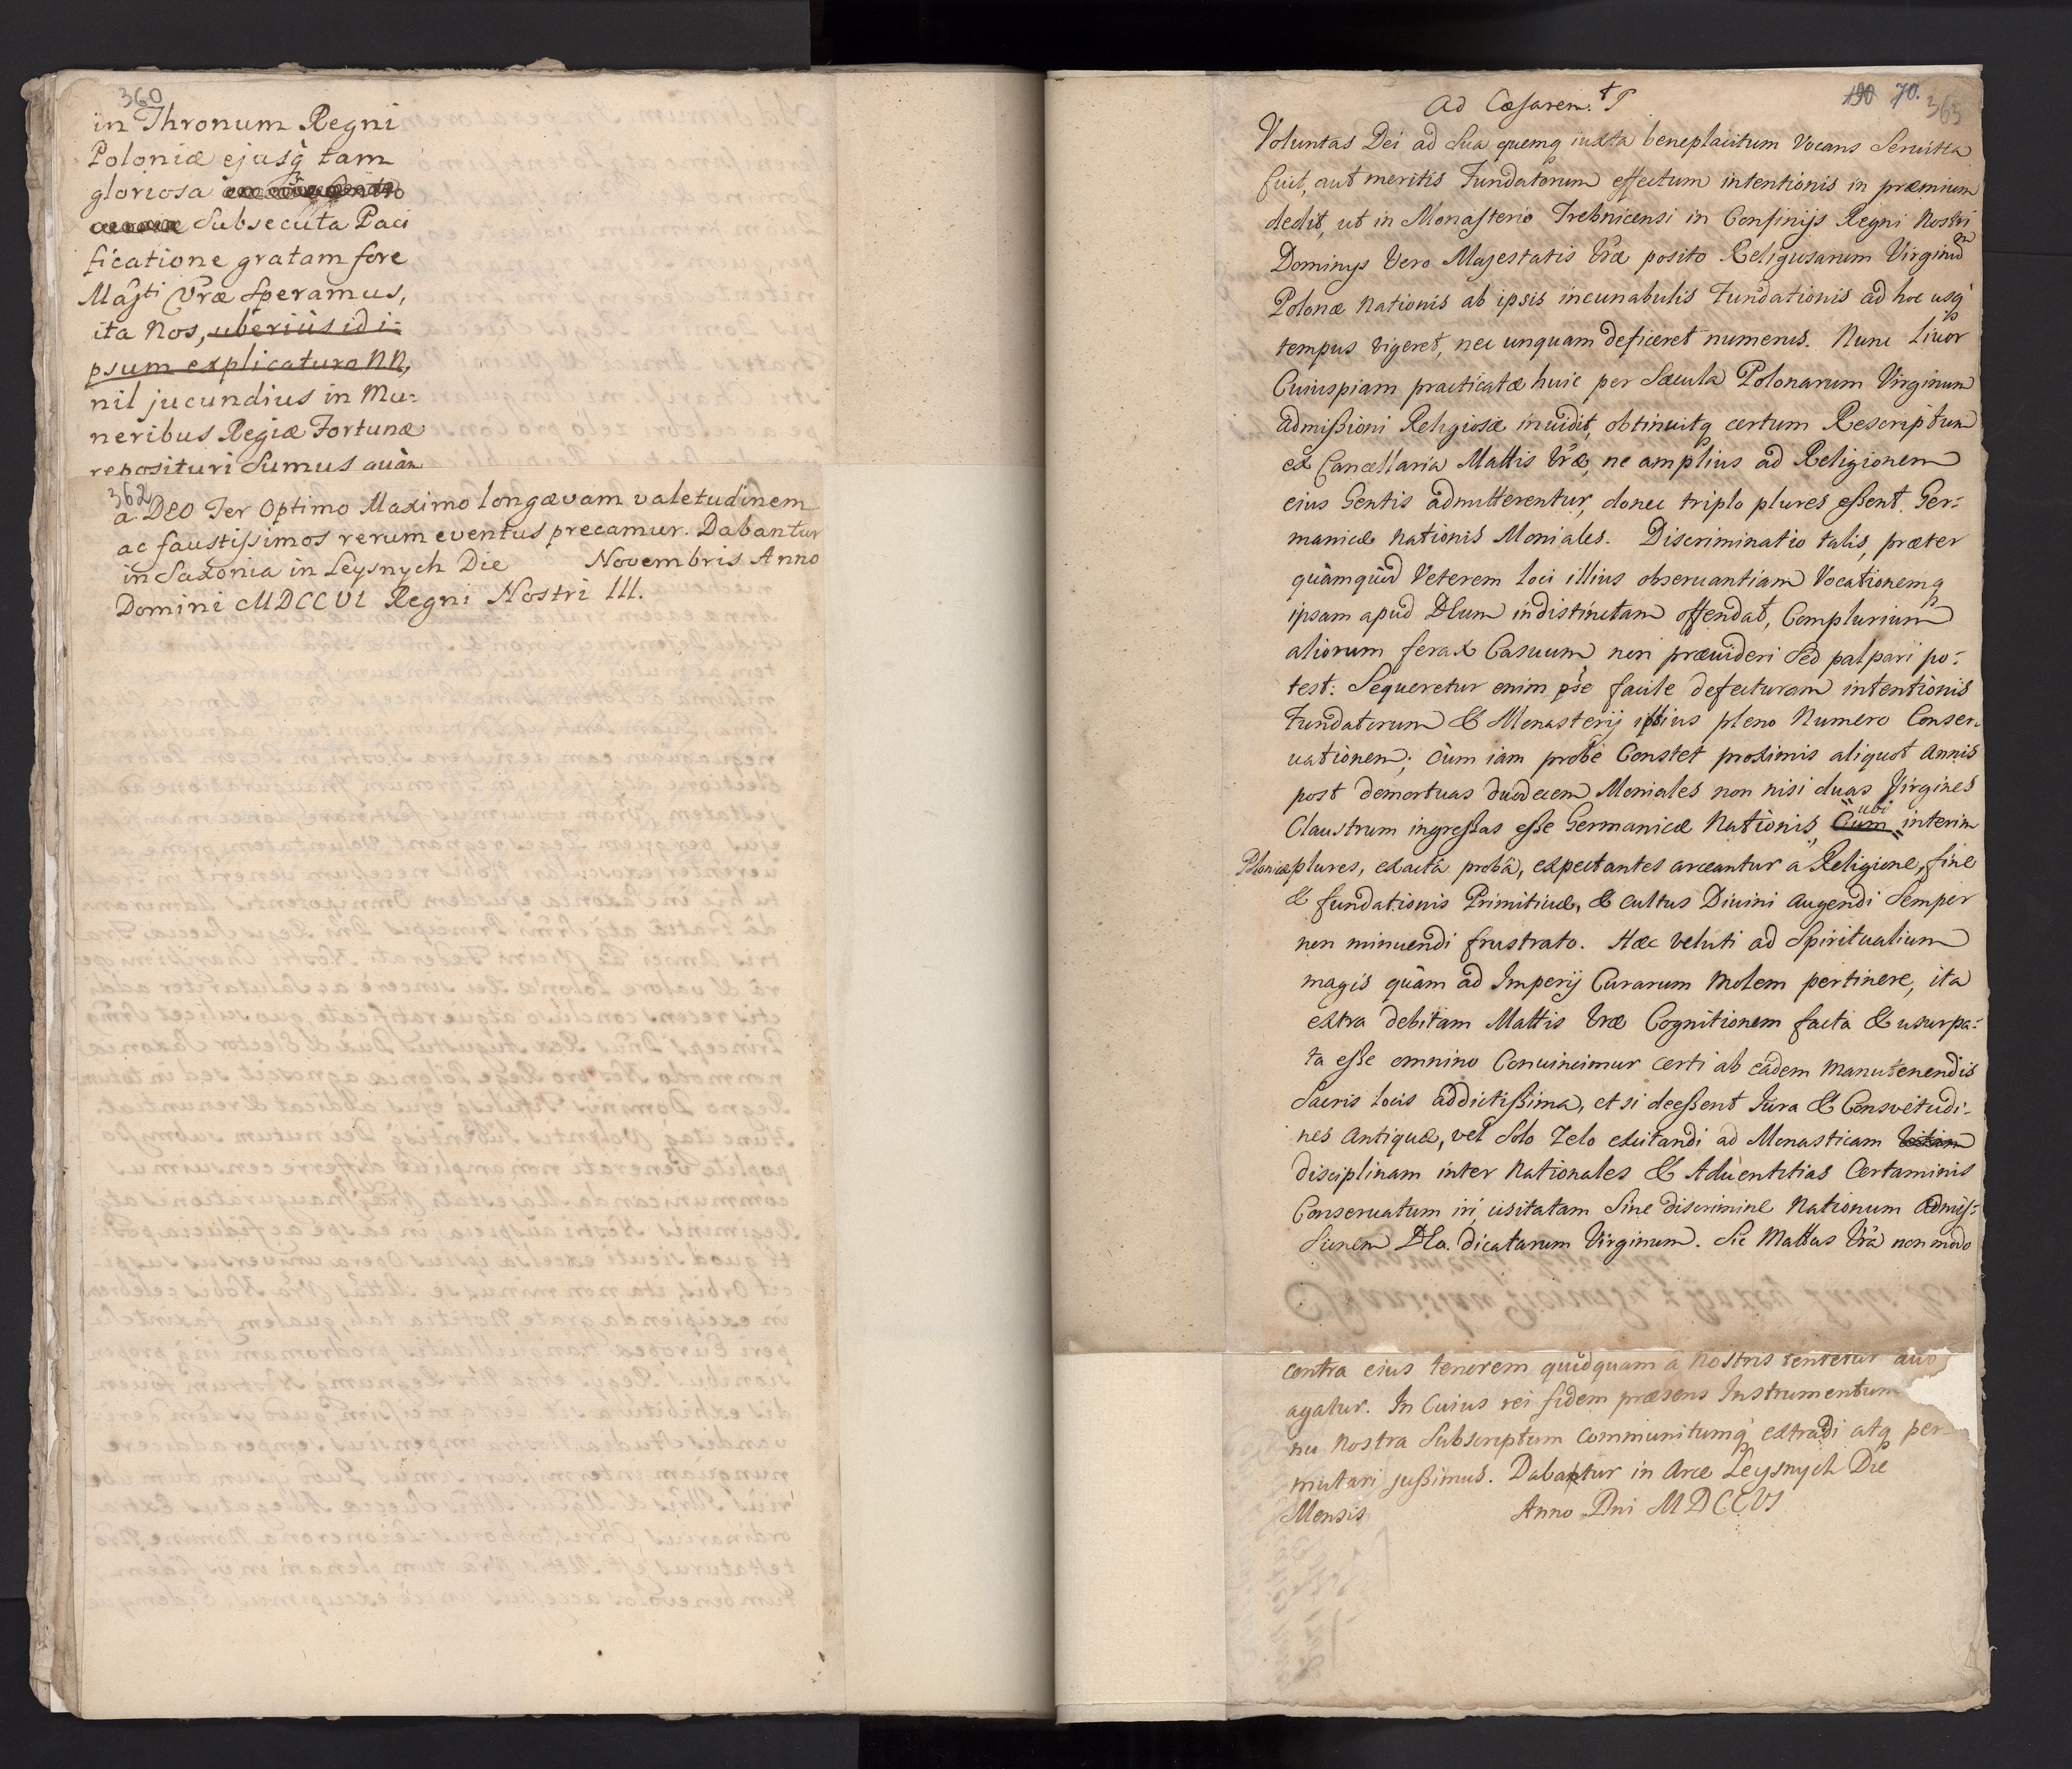 360
in Thronum Regni
Poloniæ ejusq tam
gloriosa
subsecuta Paci
ficatione gratam fore
Majti Vræ Speramus,
ita Nos, uberiùs id i-
psum explicaturo NN,
nil jucundius in Mu-
neribus Regiæ Fortunæ
reposituri Sumus quàm
362
a DEO Ter Optimo Maximo longævam valetudinem
ac faustissimos rerum eventus precamur. Dabantur
in Saxonia in Leysnych Die Novembris Anno
Domini MDCCVI Regni Nostri III.
Ad Cæsarem. 190 70. 363
Voluntas Dei ad Sua quemq iuxta beneplacitum Vocans Seruitia
fuit, aut meritis Fundatorum effectum intentionis in præmium
dedit, ut in Monasterio Trebnicensi in Confinijs Regni Nostri
Dominys Vero Majestatis Vræ posito Religiosarum Virginum
Polonæ Nationis ab ipsis incunabulis Fundationis ad hoc usq
tempus vigeret, nec unquam deficeret numerus. Nunc Livor
Cuiuspiam practicatæ huic per Sæcula Polonarum Virginum
admißioni Religiosæ inuidit, obtinuitq certum Rescriptum
ex Cancellaria Mattis Vræ, ne amplius ad Religionem
eius Gentis admitterentur, donec triplo plures eßent Ger-
manicæ nationis Moniales. Discriminatio talis, præter
quàmquòd Veterem loci illius obseruantiam Vocationemq
ipsam apud DEum indistinctam offendat, Complurium
aliorum ferax Casuum non præuideri Sed palpari po-
test: Sequeretur enim pse facile defecturam intentionis
Fundatorum & Monasterij ipsius pleno Numero Conser-
uationem; cùm iam probè Constet proximis aliquot annis
post demortuas duodecem Moniales non nisi duas Virgines
Claustrum ingreßas eße Germanicæ Nationis, Cum ubi interim
Polonicæ plures, exacta proba, expectantes arceantur a Religione, fine
& fundationis Primitiuæ, & cultus Diuini augendi Semper
non minuendi frustrato. Hæc veluti ad Spiritualium
magis quàm ad Imperij Curarum Molem pertinere, ita
extra debitam Mattis Vræ Cognitionem facta & usurpa-
ta eße omnino Conuincimur certi ab eâdem manutenendis
Sacris locis addictißima, et si deeßent Iura & Consvetudi-
nes Antiquæ, vel Solo Zelo excitandi ad Monasticam Vitam
disciplinam inter Nationales & Aduentitias Certaminis
Conseruatum iri, usitatam Sine discrimine Nationum Admis-
sionem DEo dicatarum Virginum. Sic Mattas Vra non modo
contra eius tenorem quidquam à Nostris tentetur aut
agatur. In Cuius rei fidem præsens Instrumentum
nu Nostra Subscriptum Communitumq extradi atq per-
mutari jußimus. Dabantur in Arce Leysnych Die
Mensis Anno Dni MDCCVI